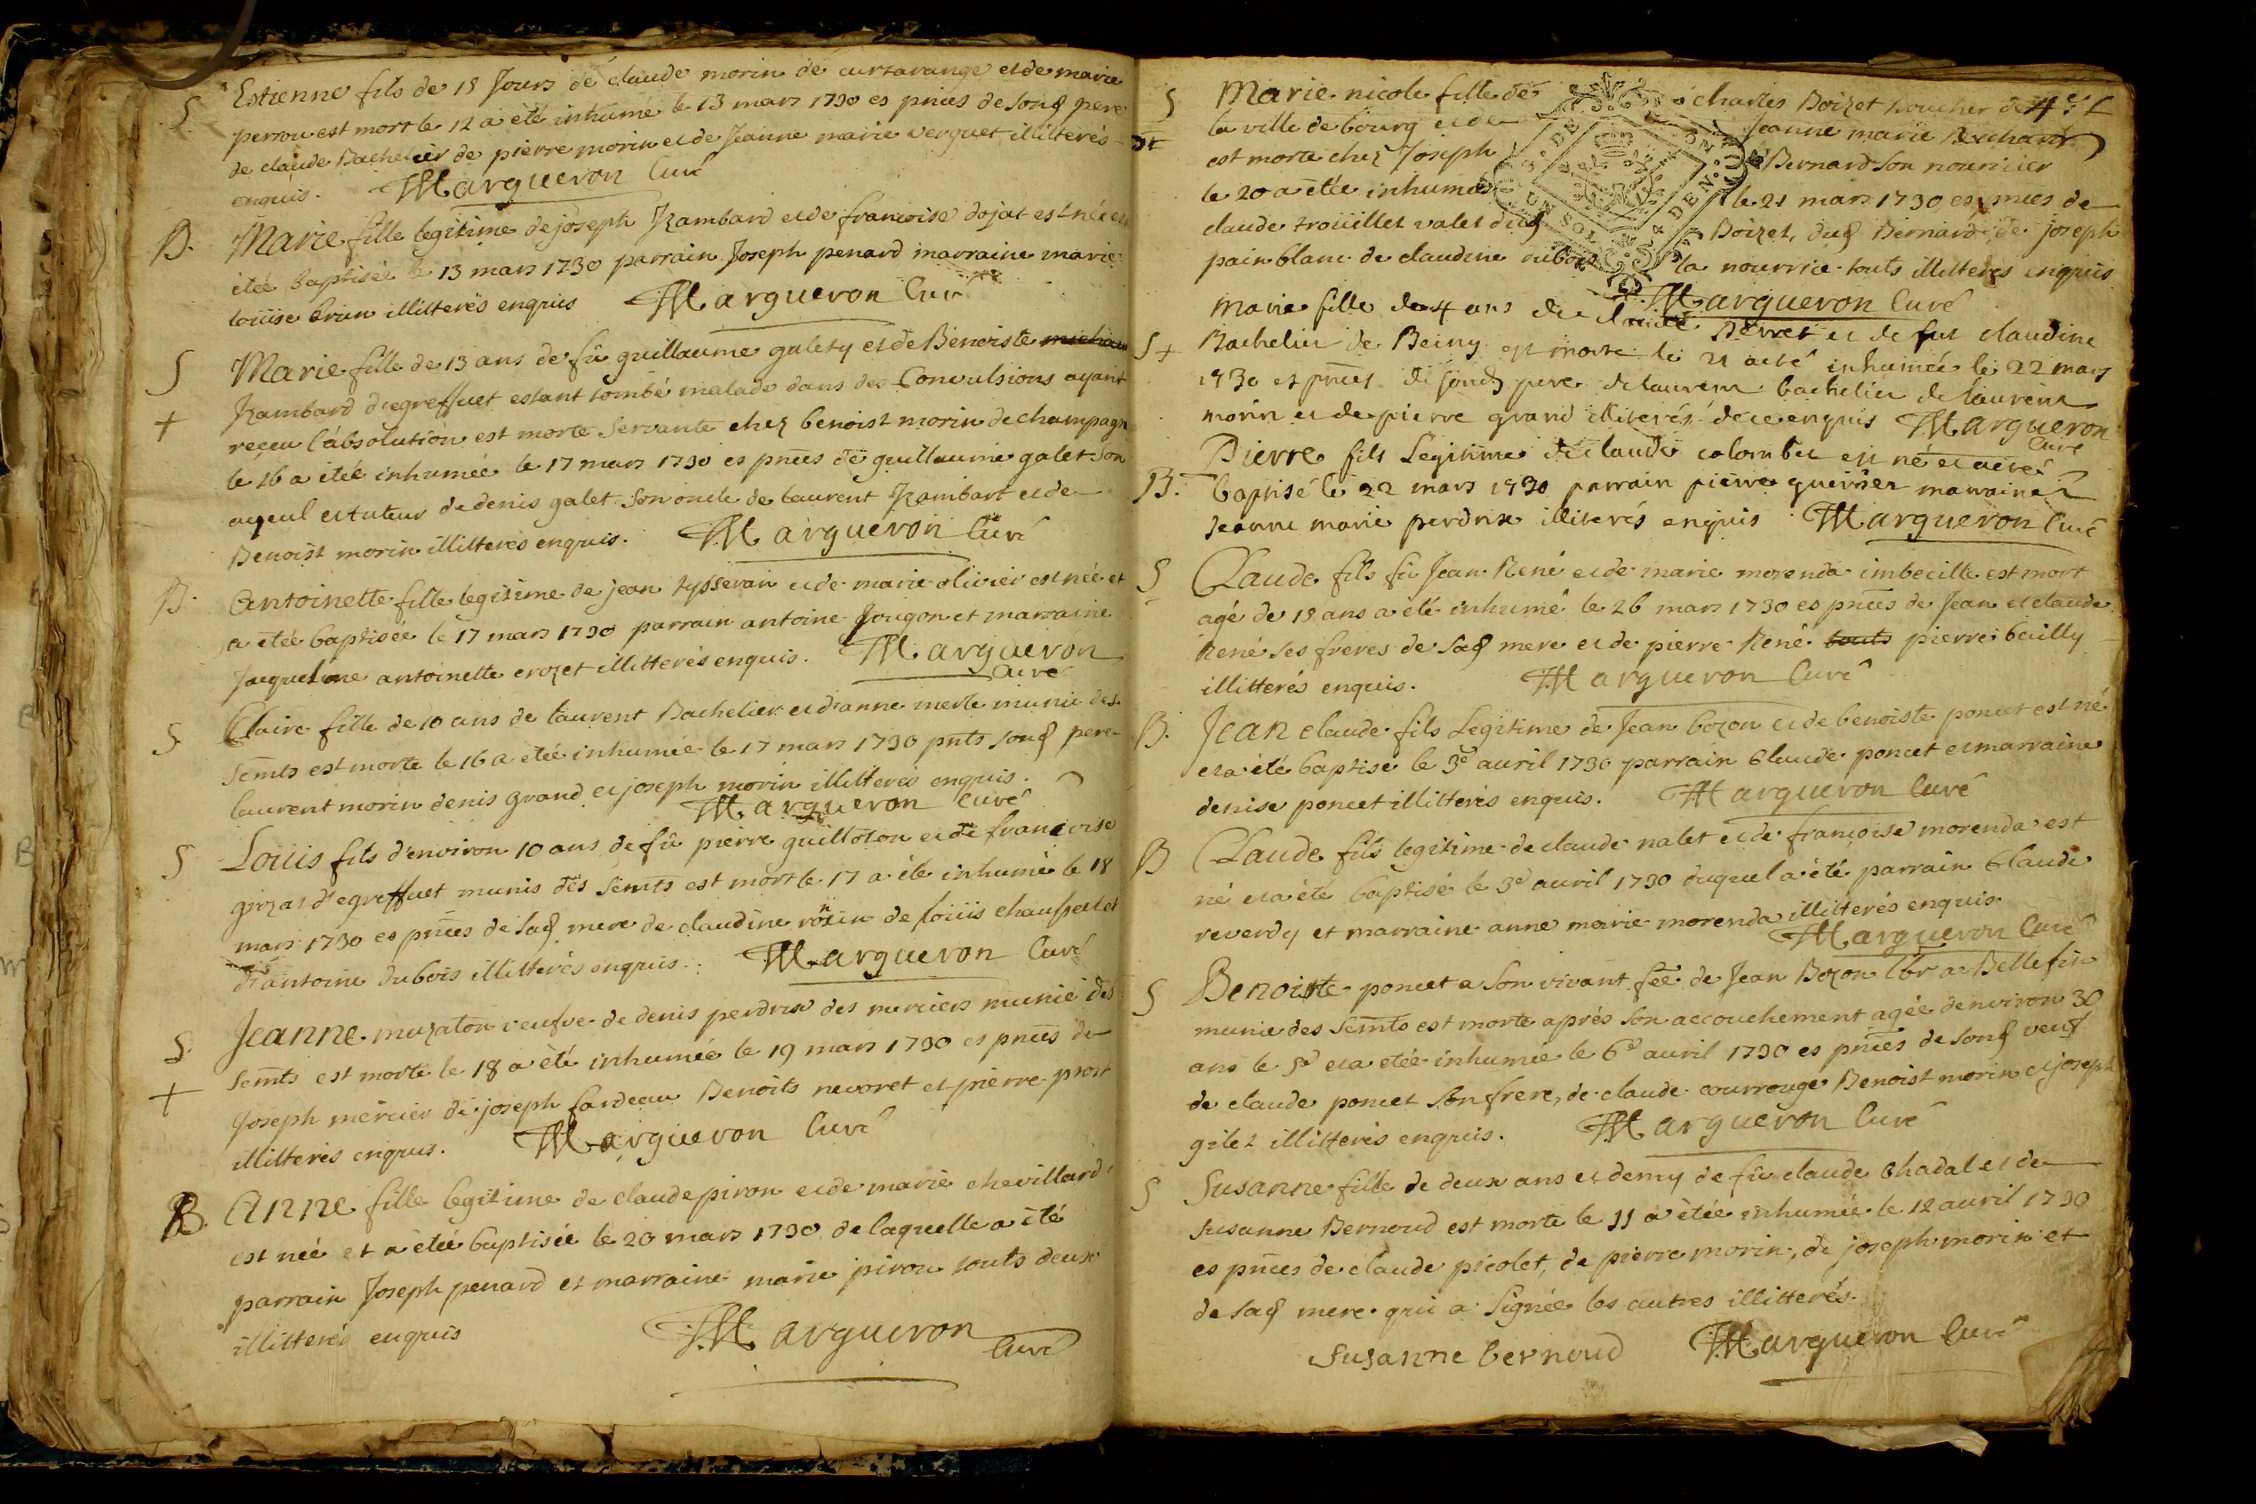 S Estienne fils de 15 Jours de claude morin de curtavange et de marie
perrou est mort le 12 a été inhumé le 13 mars 1730 es pnces de sond pere
de claude Bachelier de pierre morin et de Jeanne marie verguet illitterés
enquis. Margueron Curé
B. Marie fille legitime de joseph Rambard et de francoise dojat est née et a
étée baptisée le 13 mars 1730 parrain Joseph penard marraine marie
louise brun illitterés enquis Margueron Curé
S Marie fille de 13 ans de fû guillaume galet et de Benoiste
+ Rambard d'egreffuet estant tombé malade dans des Convulsions ayant
receu l'absolution est morte servante chez benoist morin de champagn
le 16 a étée inhumée le 17 mars 1730 es pnces de guillaume galet son
ayeul et tuteur de denis galet son oncle de laurent Rambart et de
Benoist morin illitterés enquis. Margueron Curé
B. Antoinette fille legitime de jean tysseran et de marie olivier est née et
a étée baptisée le 17 mars 1730 parrain antoine Jougon et marraine
Jacqueline antoinette crozet illitterés enquis. Margueron
Curé
S Claire fille de 10 ans de laurent Bachelier et d'anne merle munie des
semts est morte le 16 a étée inhumée le 17 mars 1730 pnts sond pere
laurent morin denis grand et joseph morin illitterés enquis.
Margueron Curé
S Loüis fils d'environ 10 ans de fû pierre guilloton et de francoise
girzat d'egreffuet munis des semts est mort le 17 a été inhumé le 18
mars 1730 es pnces de sad mere de claudine de loüis
d'antoine dubois illitterés enquis. Margueron Curé
S. Jeanne muzaton veufve de denis perdrix des merciers munie des
+ semts est morte le 18 a été inhumée le 19 mars 1730 es pnces de
Joseph mercier de joseph fardeau Benoits nevoret et pierre prost
illitterés enquis. Margueron Curé
B. Anne fille legitime de claude piron et de marie chevillard
est née et a étée baptisée le 20 mars 1730 de laquelle a été
parrain Joseph penard et marraine marie piron touts deux
illitterés enquis Margueron
Curé
S Marie nicole fille de charles Boizet boucher de
la ville de bourg et de Jeanne marie
est morte chez Joseph Bernard son nourricier
le 20 a étée inhumée le 21 mars 1730 es pnces de
claude troüillet valet dud Boizet, dud Bernard, de joseph
pain blanc de claudine dubois la nourrice touts illitterés enquis
G. DE UN SOL 4 DEN.
Margueron Curé
Marie fille de 4 ans de claude Perret et de fut claudine
S + Bachelier de Beiny est morte le 21 a eté inhumée le 22 mars
1730 es pnces de sond pere de laurent bachelier de laurent
morin et de pierre grand illiterés de ce enquis Margueron
Curé
Pierre fils Legitime de claude colombet est né et a eté
B. baptisé le 22 mars 1730 parrain pierre guerrier marraine
Jeanne marie perdrix illiterés enquis Margueron Curé
S Claude fils fû Jean René et de marie morenda imbecille est mort
agé de 18 ans a été inhumé le 26 mars 1730 es pnces de Jean et claude
René ses freres de sad mere et de pierre René touts pierre bailly
illitterés enquis. Margueron Curé
B. Jean claude fils Legitime de Jean bozon et de benoiste poncet est né
et a été baptisé le 3e avril 1730 parrain Claude poncet et marraine
denise poncet illitterés enquis. Margueron Curé
B Claude fils legitime de claude nalet et de françoise morenda est
né et a été baptisé le 3e avril 1730 duquel a été parrain Claude
reverdy et marraine anne marie morenda illitterés enquis.
Margueron Curé
S Benoiste poncet a son vivant fée de Jean Bozon lbr a Bellefin
munie des semts est morte aprés son accouchement agée denviron 30
ans le 5e et a étée inhumée le 6e avril 1730 es pnces de sond veuf
de claude poncet son frere, de claude courrouge Benoist morin et joseph
gilet illitterés enquis. Margueron Curé
S Susanne fille de deux ans et demy de fû claude Chadal et de
susanne Bernoud est morte le 11 a étée inhumée le 12 avril 1730
es pnces de claude picolet, de pierre morin, de joseph morin et
de sad mere qui a signée les autres illitterés.
Susanne bernoud Margueron Curé